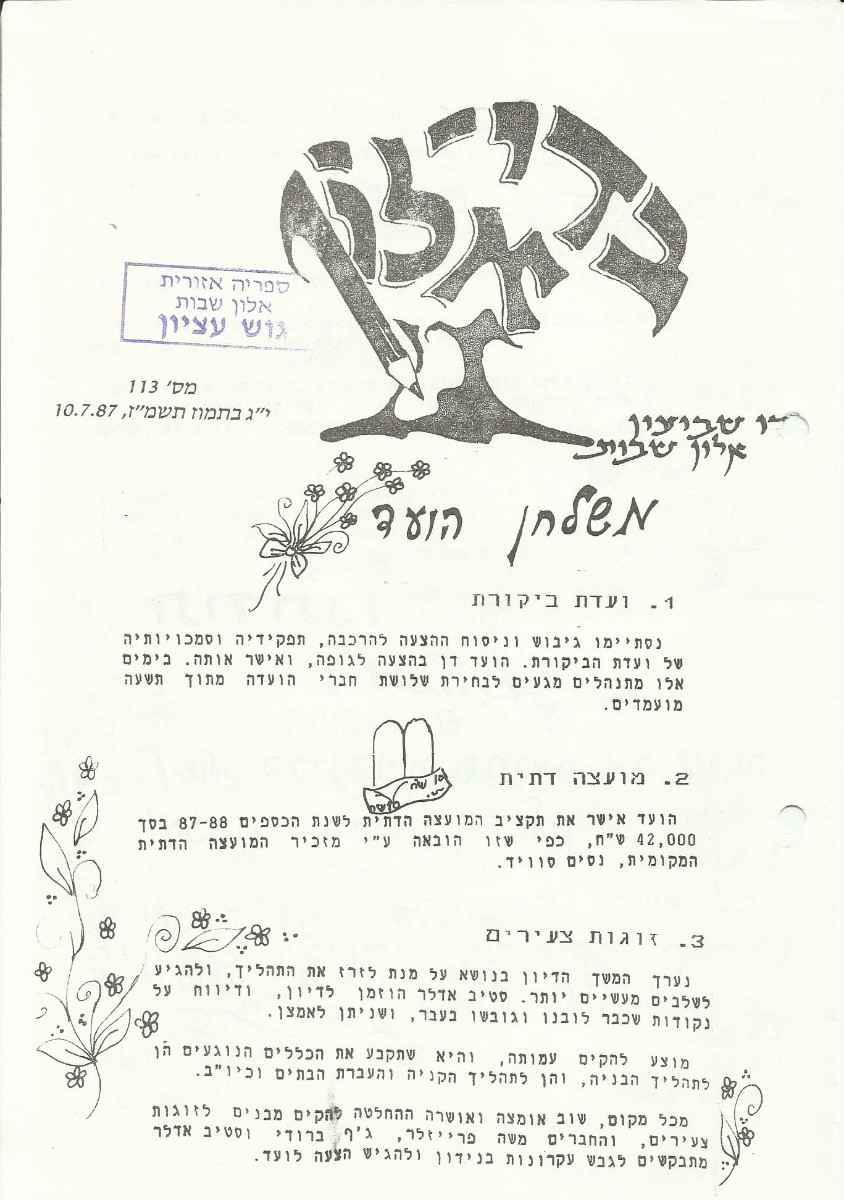 נדיאלון
ספריה אזורית
אלון שבות
גוש עציון
מס' 113
י"ג בתמוז תשמ"ז, 10.7.87
דו שבועון
אלון שבות
משלחן הועד
1. ועדת ביקורת
נסתיימו גיבוש וניסוח ההצעה להרכבה, תפקידיה וסמכויותיה
של ועדת הביקורת. הועד דן בהצעה לגופה, ואישר אותה. בימים
אלו מתנהלים מגעים לבחירת שלושת חברי הועדה מתוך תשעה
מועמדים.
2. מועצה דתית
הועד אישר את תקציב המועצה הדתית לשנת הכספים 87-88 בסך
42,000 ש"ח, כפי שזו הובאה ע"י מזכיר המועצה הדתית
המקומית, נסים סוויד.
3. זוגות צעירים
נערך המשך הדיון בנושא על מנת לזרז את התהליך, ולהגיע
לשלבים מעשיים יותר. סטיב אדלר הוזמן לדיון, ודיווח על
נקודות שכבר לובנו וגובשו בעבר, ושניתן לאמצן.
מוצע להקים עמותה, והיא שתקבע את הכללים הנוגעים הן
לתהליך הבניה, והן לתהליך הקניה והעברת הבתים וכיו"ב.
מכל מקום, שוב אומצה ואושרה ההחלטה להקים מבנים לזוגות
צעירים, והחברים משה פרייזלר, ג'ף ברודי וסטיב אדלר
מתבקשים לגבש עקרונות בנידון ולהגיש הצעה לועד.